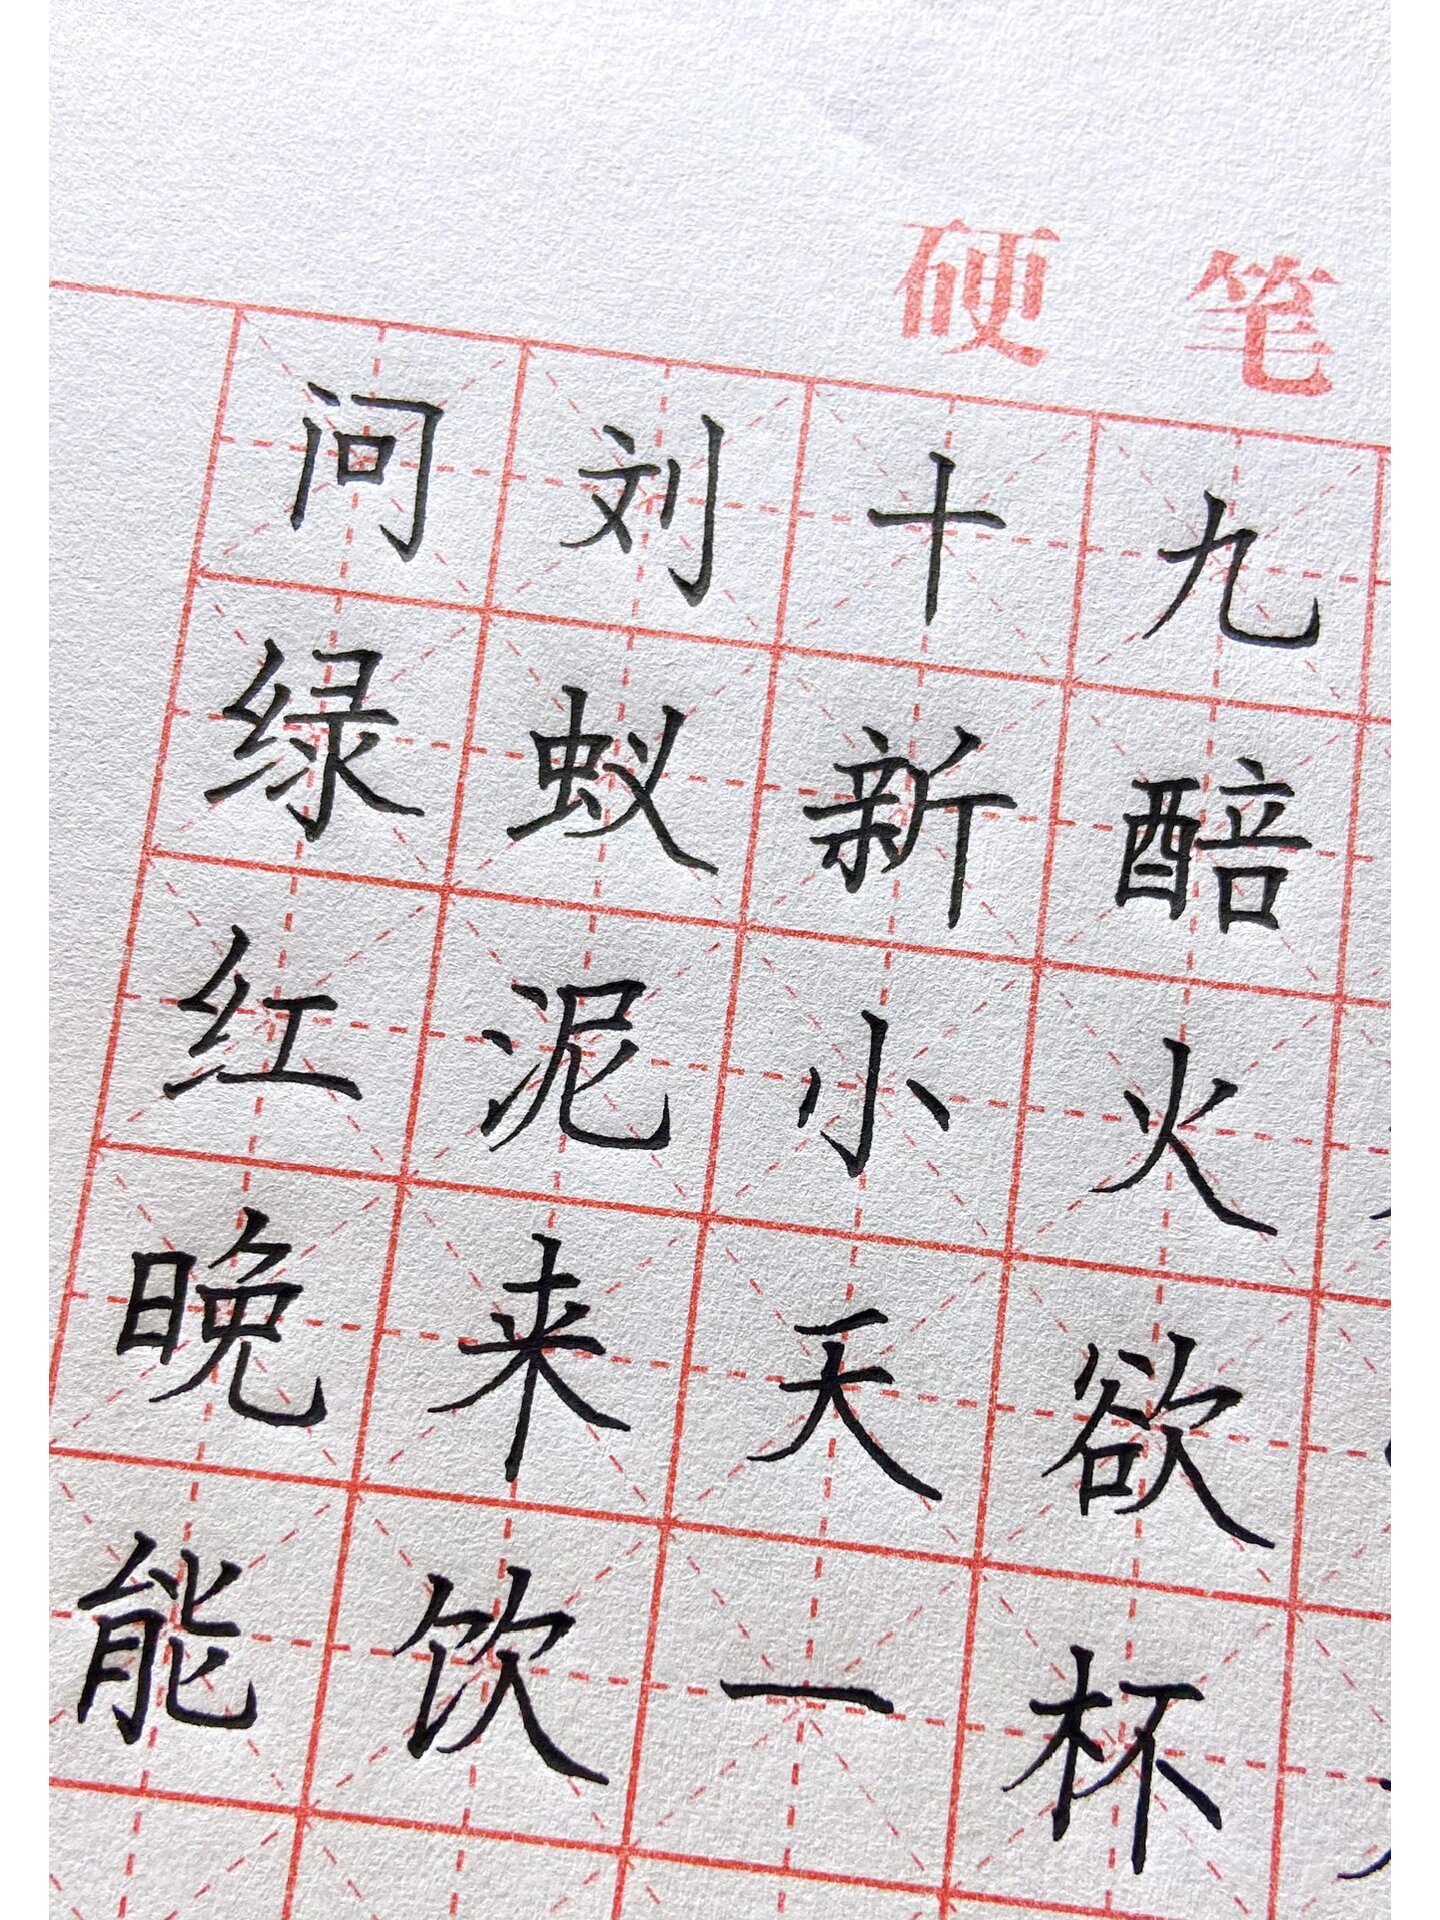 硬笔
问刘十九
绿蚁新醅
红泥小火
晚来天欲
能饮一杯